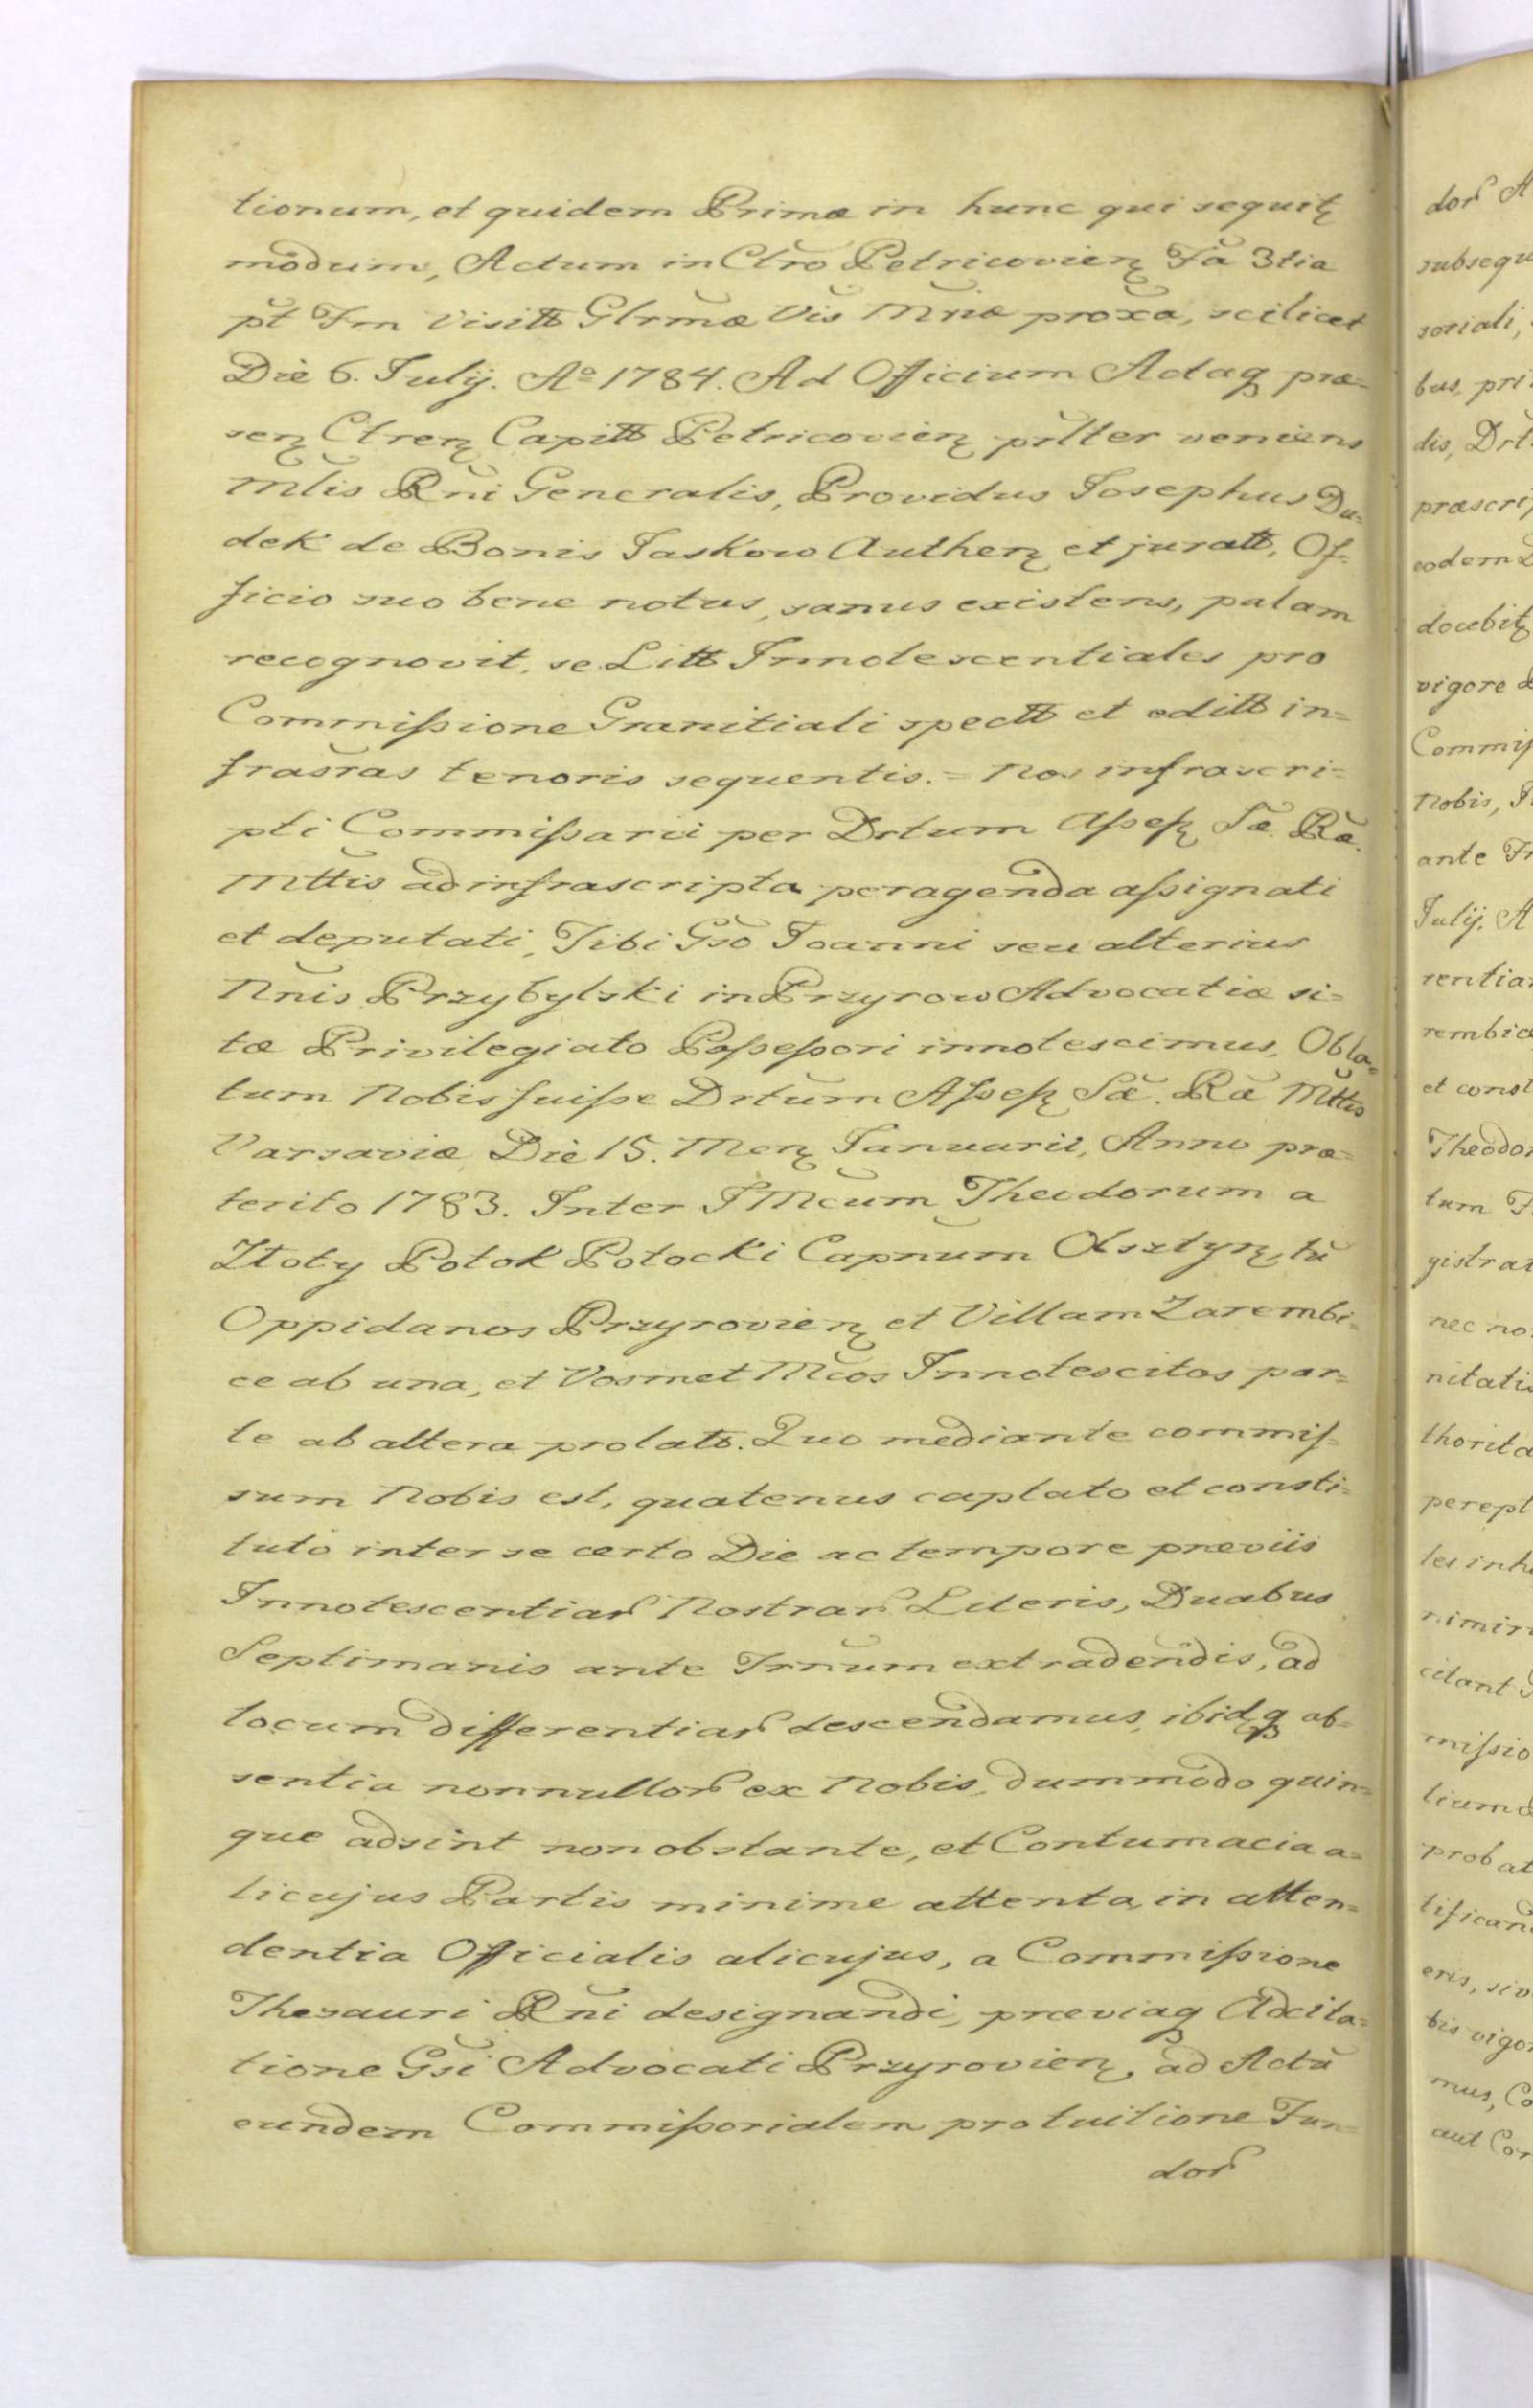 tionum, et quidem Primæ in hunc qui sequitꝫ
modum, Actum in Ctro Petricovienꝫ Fã 3tia
pt Fm Visittt Glrmæ Vis Mriæ proxa, scilicet
Die 6. Julij. Aº 1784. Ad Officium Actaqꝫ præ=
senꝫ Ctrenꝫ Capittt Petricovienꝫ prlter veniens
Mlis Rni Generalis, Providus Josephus Du=
dek de Bonis Jaskow Authenꝫ et juratt, Of=
ficio suo bene notus, sanus existens, palam
recognovit, se Littt Innotescentiales pro
Commiſsione Granitiali spectt et edittt in=
frasras tenoris sequentis. = Nos infrascri=
pti Commiſsarii per Drtum Aſseſꝫ Sæ. Ræ.
Mttis ad infrascripta peragenda aſsignati
et deputati, Tibi Gso Joanni seu alterius
Nnis Przybylski in Przyrow Advocatiæ si=
tæ Privilegiato Poſseſsori innotescimus, Obla=
tum Nobis fuiſse Drtum Aſseſꝫ Sæ. Ræ Mttis
Varsaviæ Die 15. Menꝫ Januarii, Anno præ=
terito 1783. Inter J Mcum Theodorum a
Złoty Potok Potocki Capnum Olsztynꝫ, tũ
Oppidanos Przyrovienꝫ et Villam Zarembi=
ce ab una, et Vosmet Mcos Innotescitos par=
te ab altera prolatt. Quo mediante commiſ=
sum Nobis est, quatenus captato et consti=
tuto inter se certo Die ac tempore præviis
Innotescentiarꝭ Nostrarꝭ Literis, Duabus
Septimanis ante Trnum extradendis, ad
locum differentiarꝭ descendamus, ibidꝫqꝫ ab=
sentia nonnullorꝭ ex Nobis, dummodo quin=
que adsint non obstante, et Contumacia a=
licujus Partis minime attenta, in atten=
dentia Officialis alicujus, a Commiſsione
Thesauri Rni designandi, præviaqꝫ Adcita=
tione Gsi Advocati Przyrovienꝫ, ad Actũ
eundem Commiſsorialem pro tuitione Fun=
dorꝭ
dorꝭ A
subsequ
soriali,
bus, pri
dis, Drt
præscri
eodem
docebitꝫ
vigore
Commiſ
Nobis,
ante
Julij. A
rentia
rembic
et const
Theodo
tum
gistra
nec no
nitatis
thorita
perept
les inh
nimir
citant
miſsio
lium
probat
tifican
eris, siv
bis vigo
mus, Co
aut Co